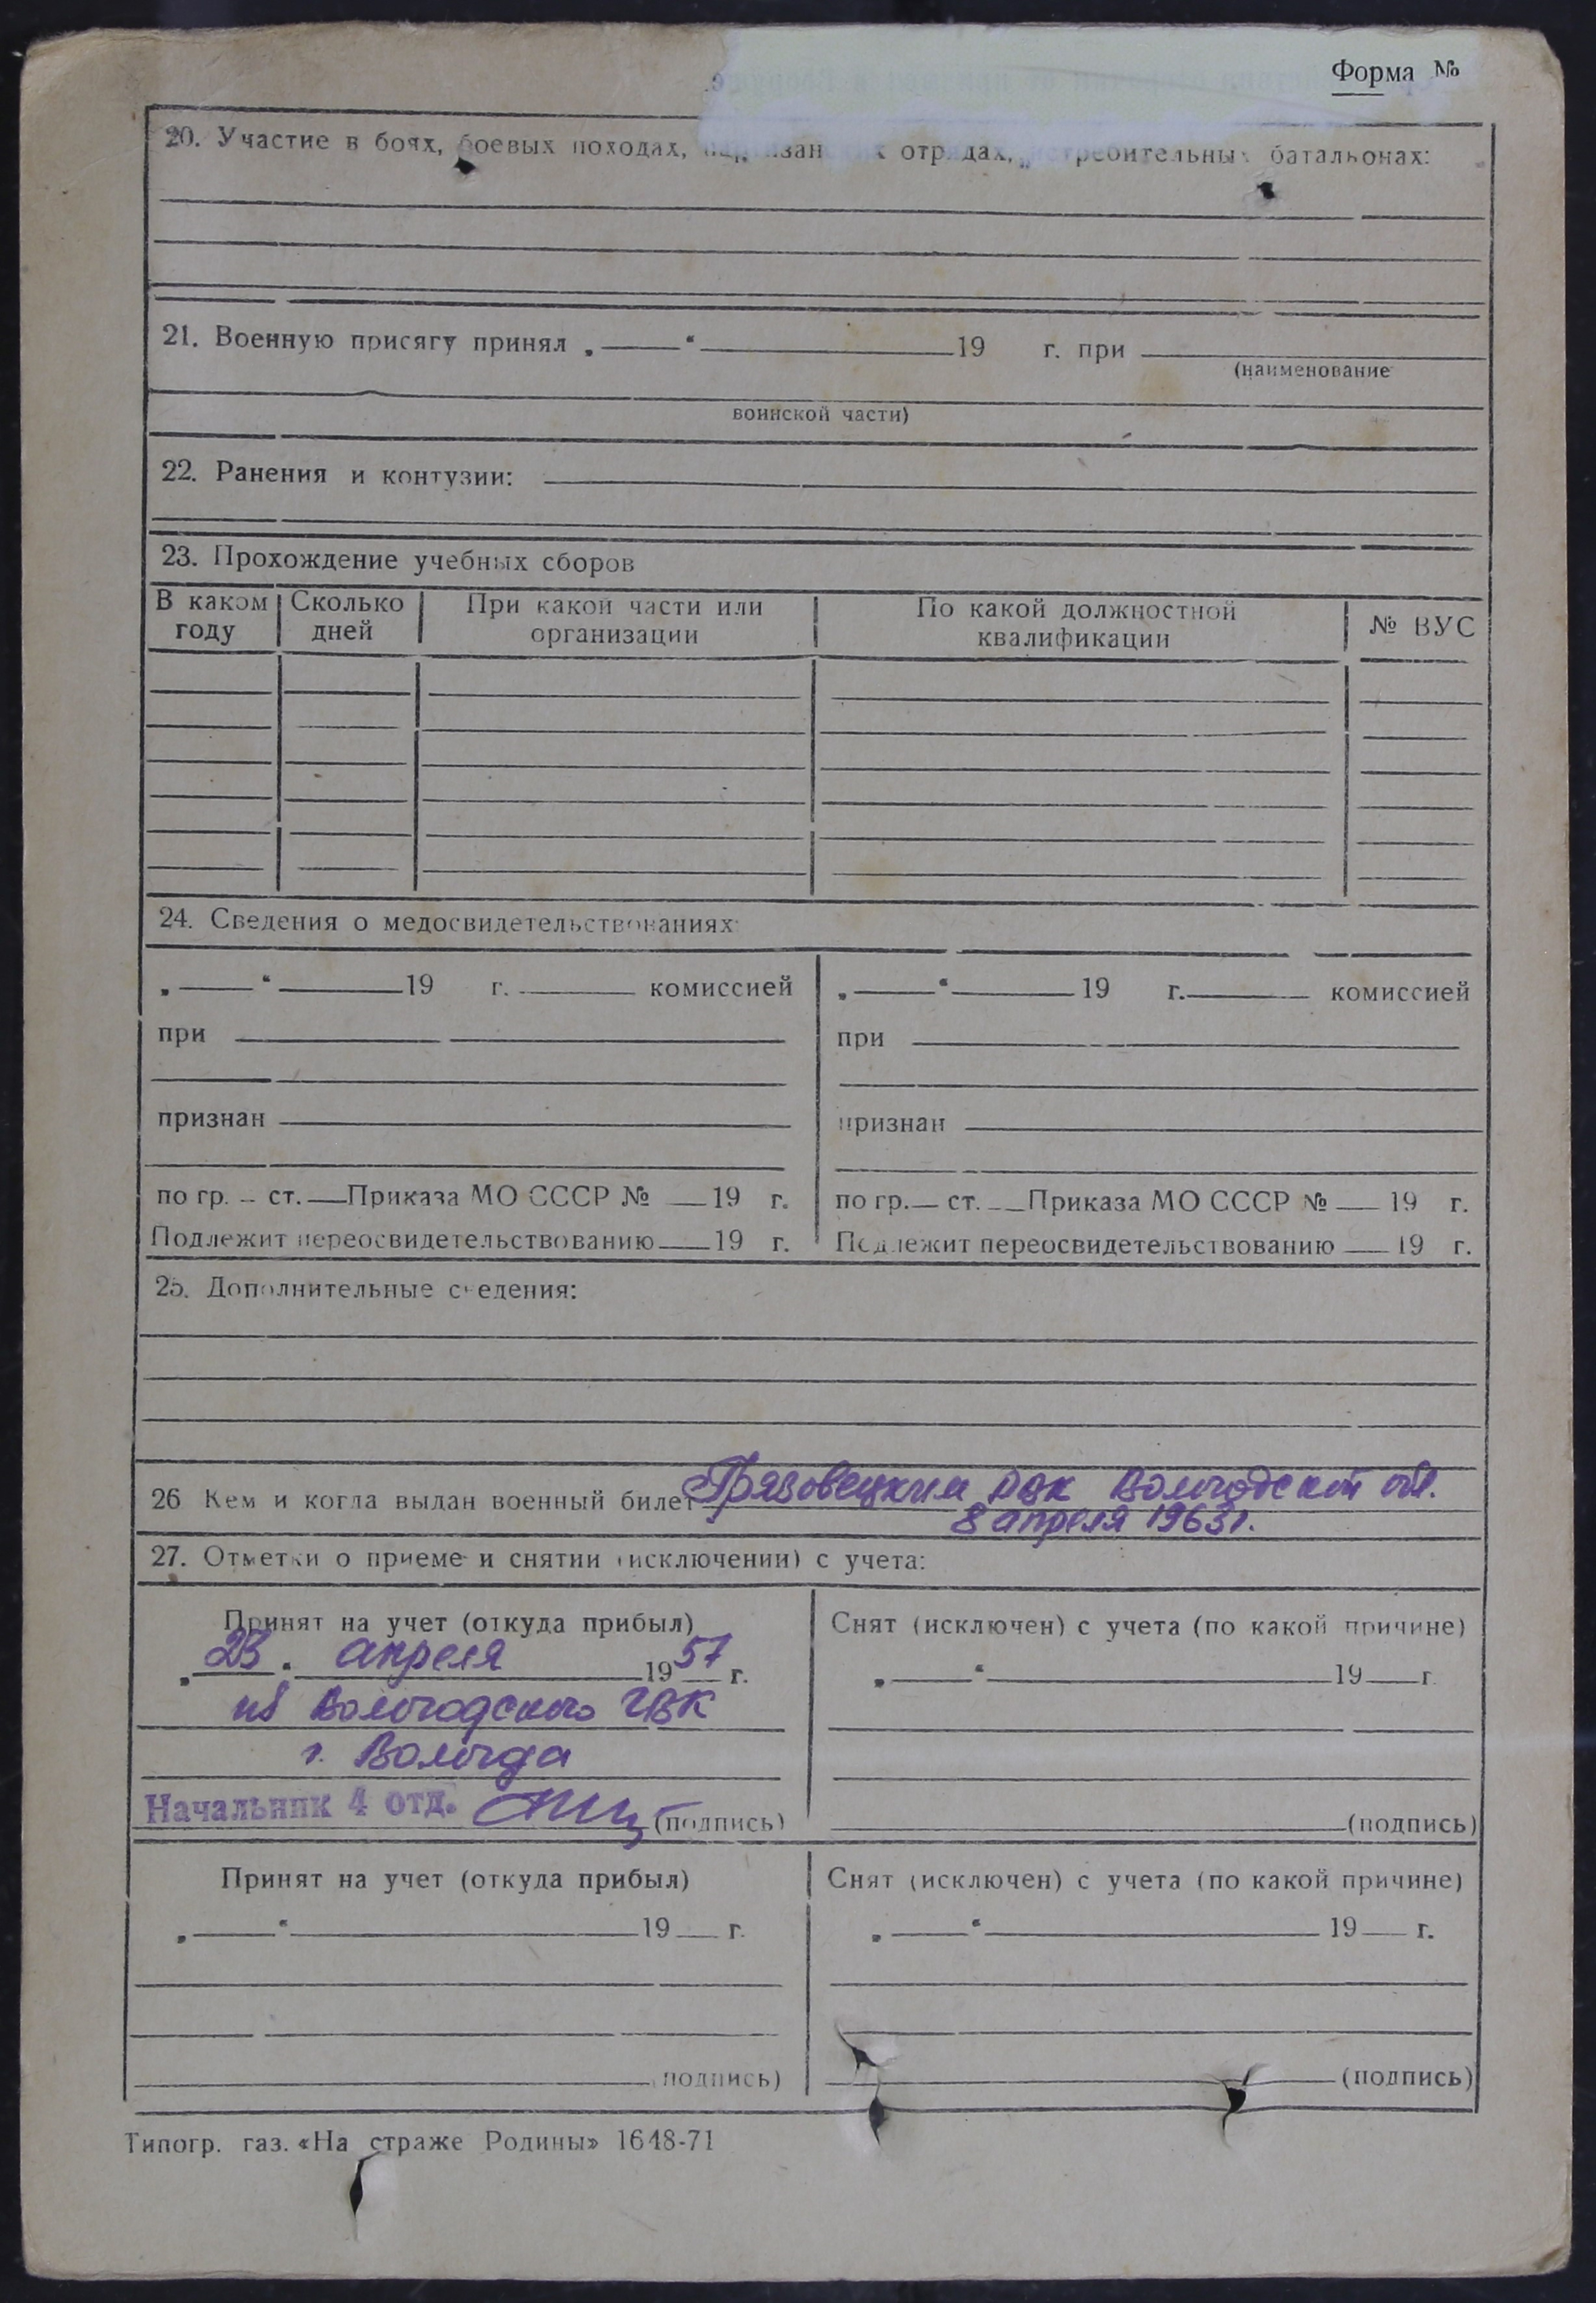 Форма №
20. Участие в боях, боевых походах, отрядах, батальонах:
21. Военную присягу принял „ “ 19 г. при
(наименование
воинской части)
22. Ранения и контузии:
23. Прохождение учебных сборов
В каком году Сколько дней При какой части или организации По какой должностной квалификации № ВУС
24. Сведения о медосвидетельствованиях:
„ “ 19 г. комиссией
при
признан
по гр. ст. Приказа МО СССР № 19 г.
Подлежит переосвидетельствованию 19 г.
„ “ 19 г. комиссией
при
признан
по гр. ст. Приказа МО СССР № 19 г.
Подлежит переосвидетельствованию 19 г.
25. Дополнительные сведения:
26 Кем и когда выдан военный билет Грязовецким РВК Вологодской обл.
8 апреля 1963г.
27. Отметки о приеме и снятии (исключении) с учета:
Принят на учет (откуда прибыл)
„23“ апреля 1957 г.
из Вологодского ГВК
г. Вологда
Начальник 4 отд. (подпись)
Снят (исключен) с учета (по какой причине)
„ “ 19 г.
(подпись)
Принят на учет (откуда прибыл)
„ “ 19 г.
(подпись)
Снят (исключен) с учета (по какой причине)
„ “ 19 г.
(подпись)
Типогр. газ. «На страже Родины» 1648-71